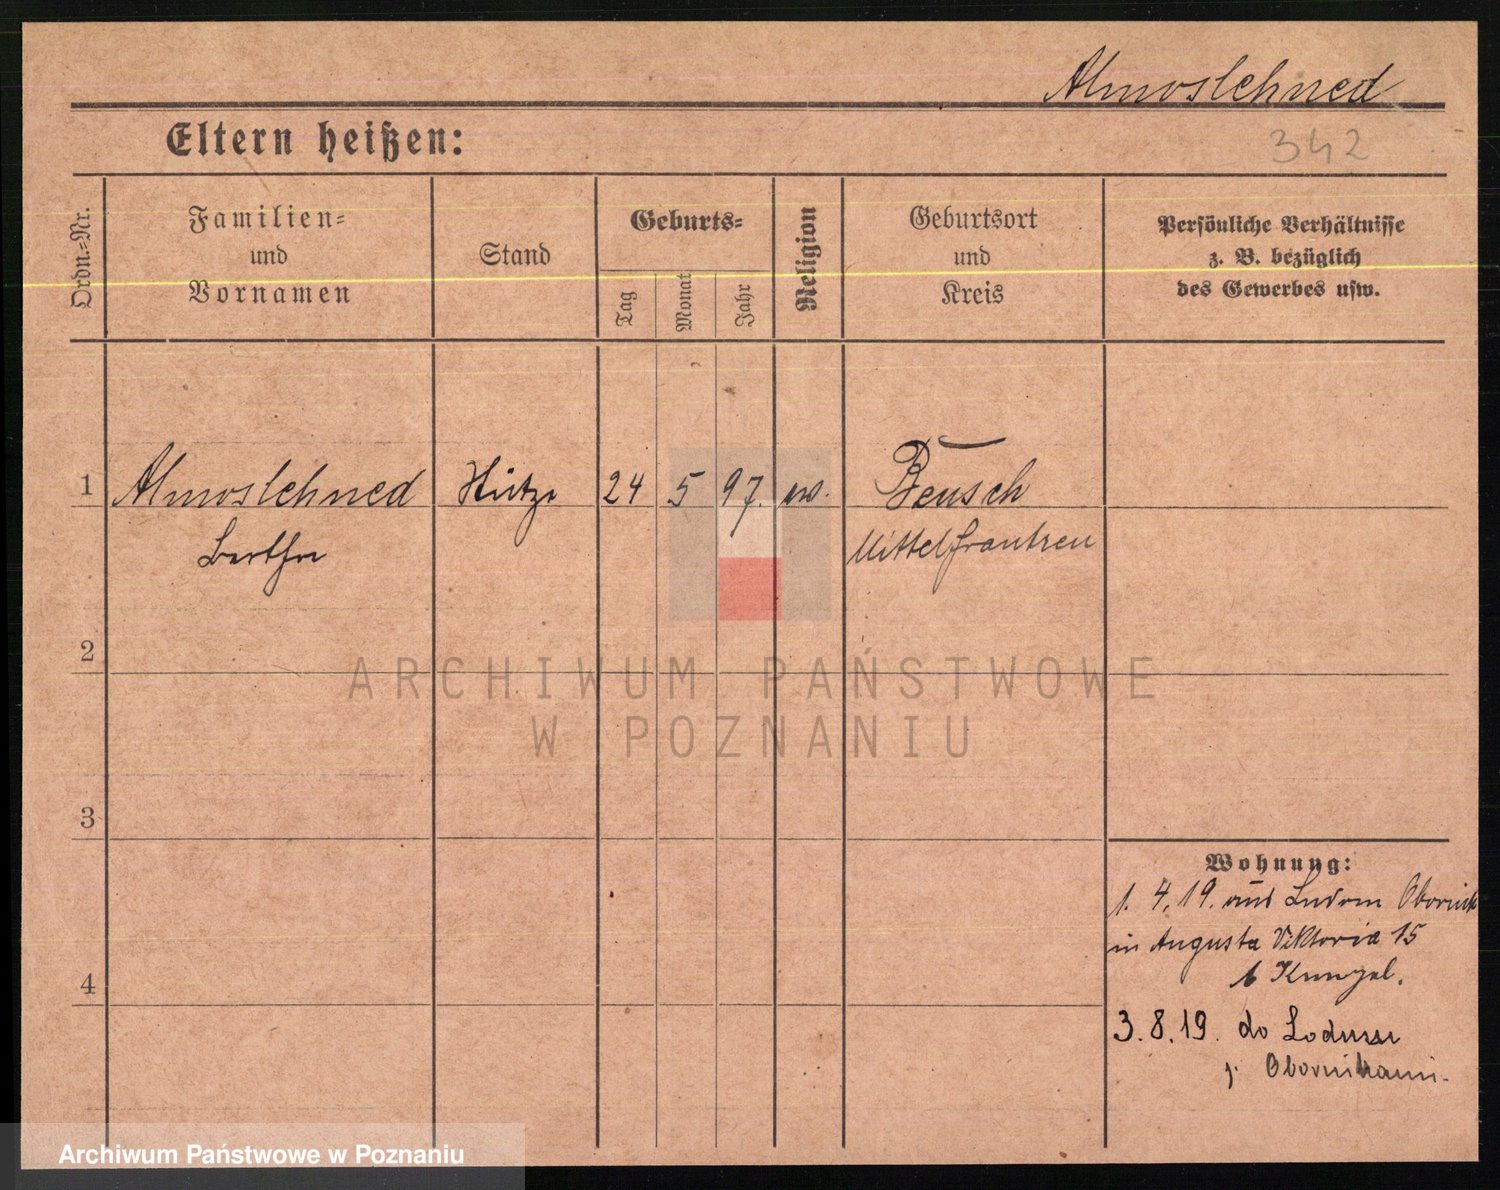 Almoslehned
Eltern heißen:
342
Ordn.=Nr.
Familien=
und
Vornamen
Stand
Geburts=
Tag
Monat
Jahr
Religion
Geburtsort
und
Kreis
Persönliche Verhältnisse
z. B. bezüglich
des Gewerbes usw.
1
Almoslehned
Stütze
24
5
97.
ev.
Beusch
Bertha
Mittelfranken
2
ARCHIWUM PAŃSTWOWE
W POZNANIU
3
Wohnung:
1. 4. 19. aus Ludom Obornik
in Augusta Viktoria 15
b
4
3.8.19. do
Obornikami.
Archiwum Państwowe w Poznaniu